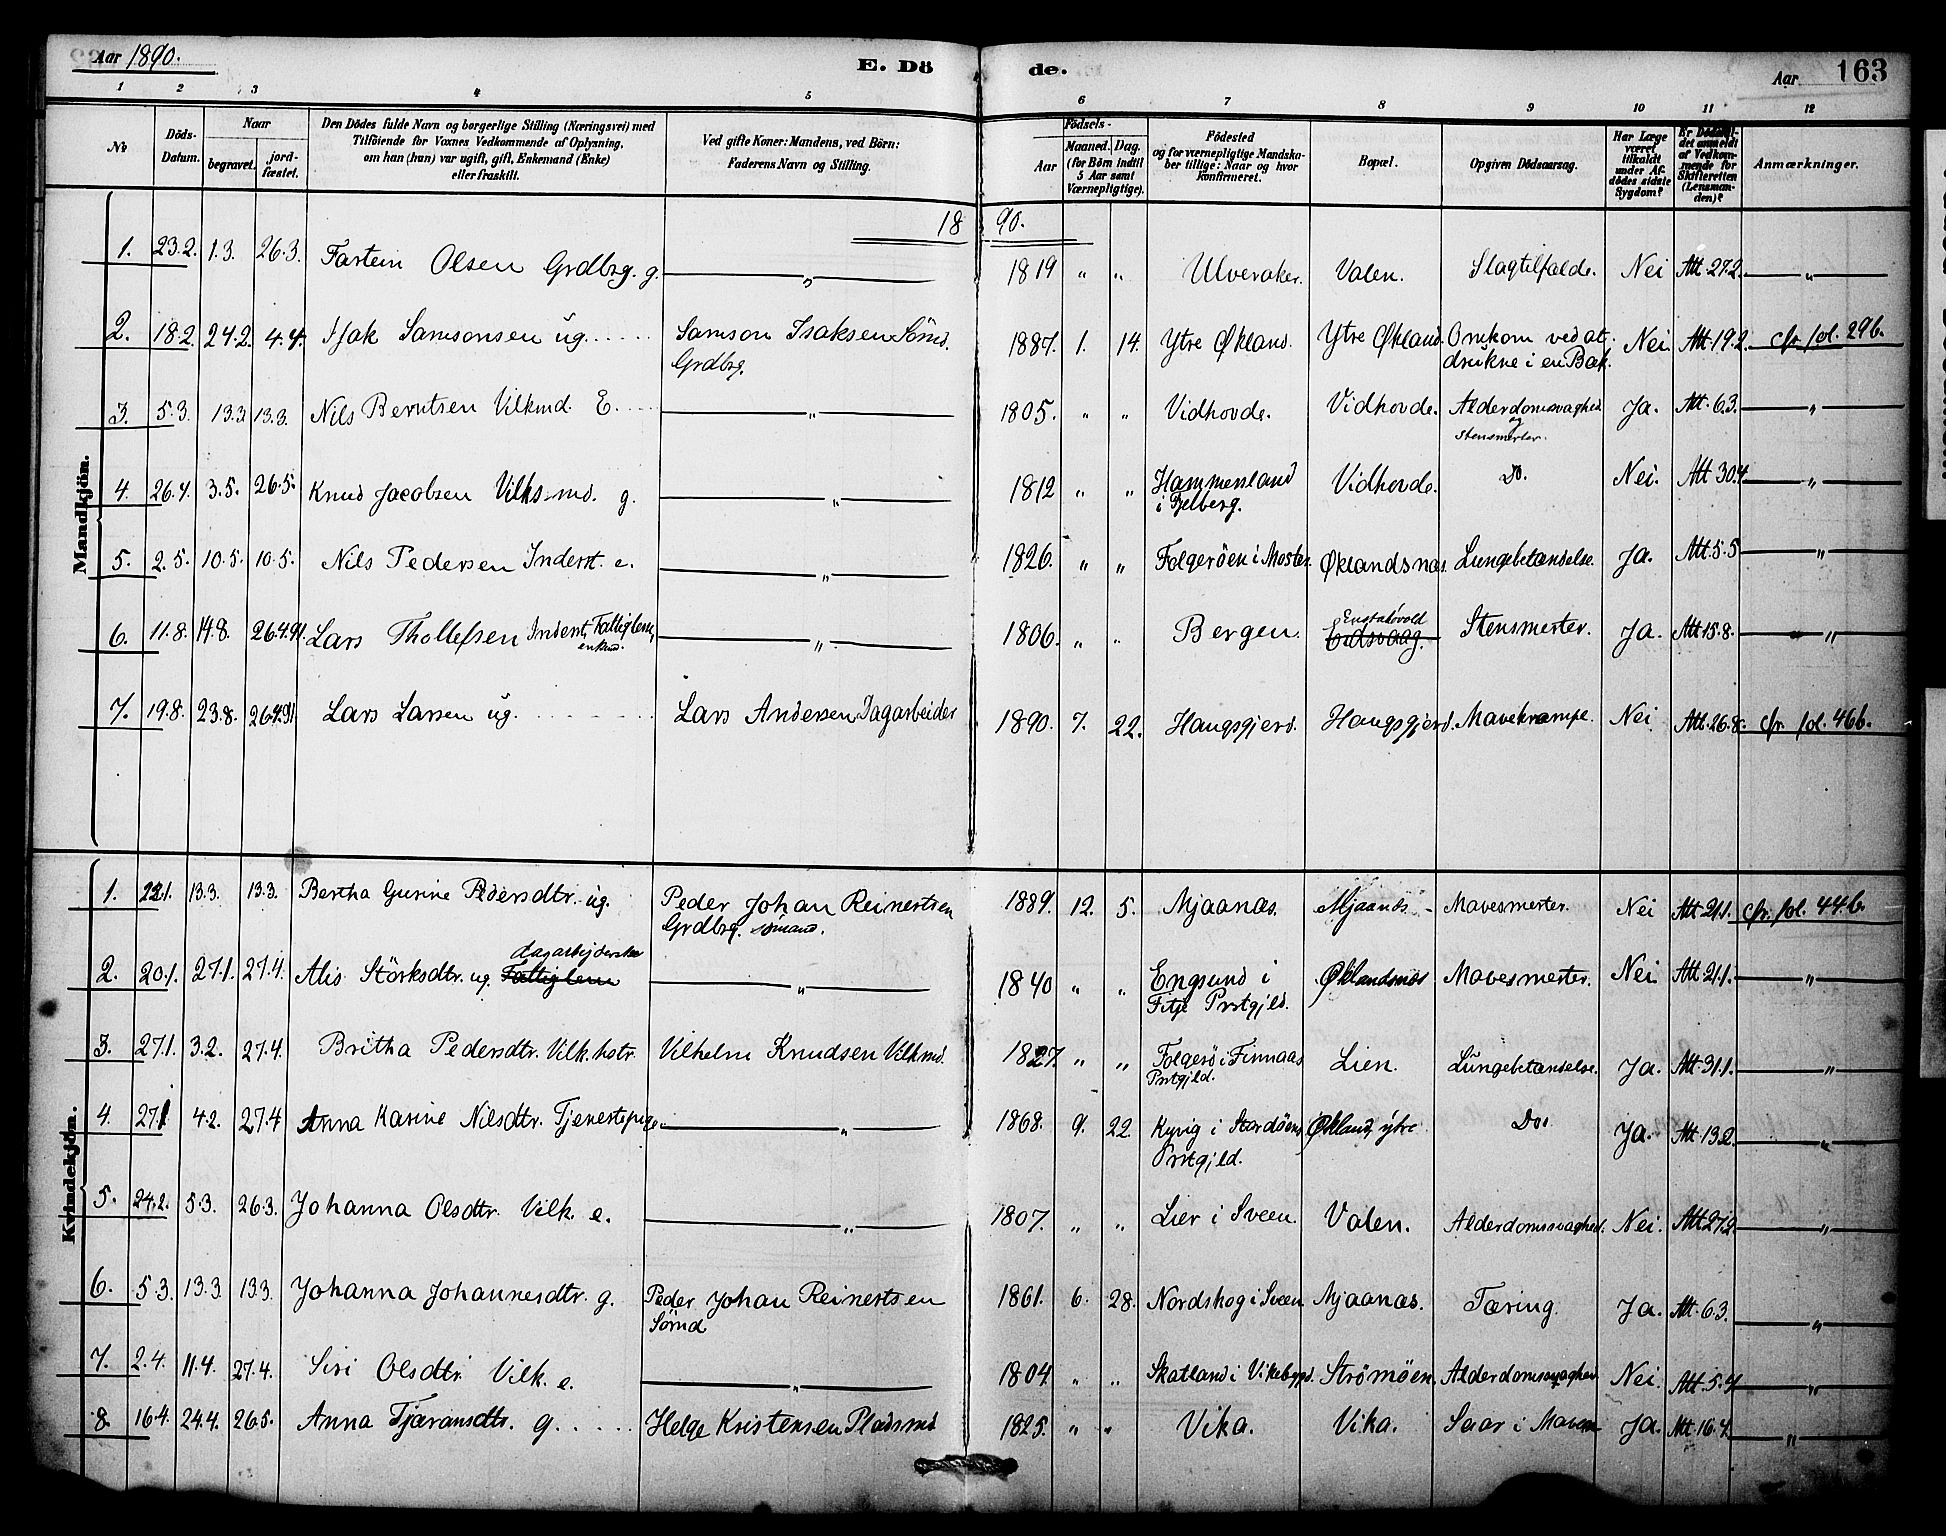 Aar 1890.
E. Dö de.
Aar 163
1 2 3 4 5 6 7 8 9 10 11 12
No
Döds-Datum.
Naar begravet. jordfæstet.
Den Dödes fulde Navn og borgerlige Stilling (Næringsvei) med Tilföiende for Voxnes Vedkommende af Oplysning, om han (hun) var ugift, gift, Enkemand (Enke) eller fraskilt.
Ved gifte Koner: Mandens, ved Börn: Faderens Navn og Stilling.
Födsels- Aar Maaned. Dag. (for Börn indtil 5 Aar samt Værnepligtige).
Födested og for værnepligtige Mandskaber tillige: Naar og hvor konfirmeret.
Bopæl.
Opgiven Dödsaarsag.
Har Læge været tilkaldt under Afdödes sidste Sygdom?
Er Dödsfaldet anmeldt af Vedkommende for Skifteretten (Lensmanden)?
Anmærkninger.
18 90.
Mandkjön.
1. 23.2. 1.3. 26.3. Fartein Olsen Grdbrg. g. " 1819 " " Ulveraker. Valen. Slagtilfælde. Nei Att 27.2. "
2. 18.2. 24.2. 4.4. Isak Samsonsen ug. Samson Isaksen Sömd. 1887. 1. 14. Ytre Økland. Ytre Økland. Omkom ved at Nei Att 19.2. cfr. fol. 29b.
Grdbrg. drukne i en Bæk.
3. 5.3. 13.3. 13.3. Nils Berntsen Vilkmd. E. " 1805. " " Vidhovde. Vidhovde. Alderdomssvaghed Ja. Att 6.3. "
og
Stensmerter.
4. 26.4. 3.5. 26.5. Knud Jacobsen Vilksmd. g. " 1812 " " Hammersland Vidhovde. Do. Nei. Att 30.4. "
i Fjelberg.
5. 2.5. 10.5. 10.5. Nils Pedersen Inderst. e. " 1826. " " Folgeröen i Moster. Øklandsnæs. Lungebetændelse. Ja. Att 5.5 "
6. 11.8. 14.8. 26.4.91. Lars Thollefsen Inderst, Fattiglem, " 1806. " " Bergen. Eidsvaag. Stensmerter. Ja. Att 15.8. "
enkmd.
7. 19.8. 23.8. 26.4.91 Lars Larsen ug. Lars Andersen Dagarbeider 1890. 7. 22. Haugsgjerd. Haugsgjerd. Mavekrampe. Nei Att 26.8. cfr. fol. 46b.
Kvindekjön.
1. 13.3. 13.3. Bertha Gurine Pedersdtr. ug. Peder Johan Reinertsen 1889. 12. 5. Mjaanæs. Mjaanæs. Mavesmerter. Nei Att 21.1. cfr. fol. 44b.
Grdbrg. sömand.
dagarbejderske
2. 20.1. 27.1. 27.4. Alis Störksdtr. ug. Fattiglem " 1840 " " Engsund i Øklandsnæs Mavesmerter. Nei Att 21.1. "
Fitje Prstgjld.
3. 27.1. 3.2. 27.4. Britha Pedersdtr. Vilk. hstr. Vilhelm Knudsen Vilkmd. 1827. " " Folgerö i Finnaas Lien. Lungebetændelse. Ja. Att 31.1. "
Prstgjld.
4. 27.1 4.2. 27.4 Anna Karine Nilsdtr. Tjenestepige. " 1868. 9. 22. Kyvig i Stordöens Økland, ytre Do. Ja. Att 13.2. "
Prstgjld.
5. 24.2. 5.3. 26.3. Johanna Olsdtr. Vilk. e. " 1807. " " Lier i Sveen. Valen. Alderdomssvaghed. Nei. Att 27.2. "
6. 5.3. 13.3. 13.3. Johanna Johannesdtr. g. Peder Johan Reinertsen 1861. 6. 28. Nordskog i Sveen Mjaanæs. Tæring. Ja. Att 6.3. "
Sömd
7. 2.4. 11.4. 27.4. Siri Olsdtr. Vilk. e. " 1804. " " Skatland i Vikebygd. Strömöen. Alderdomssvaghed. Nei. Att 5.4 "
8. 16.4. 24.4. 26.5. Anna Tjæransdtr. g. Helge Kristensen Pladsmd 1825. " " Vika. Vika. Saar i Maven Ja. Att 16.4. "